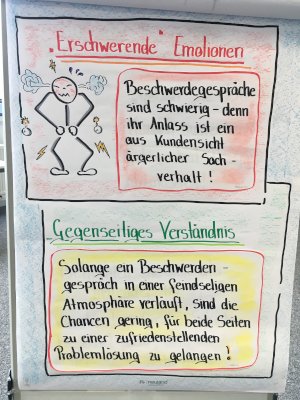 „Erschwerende" Emotionen
Beschwerdegespräche
sind schwierig – denn
ihr Anlass ist ein
aus Kundensicht
ärgerlicher Sach-
verhalt!
Gegenseitiges Verständnis
Solange ein Beschwerden-
gespräch in einer feindseligen
Atmosphäre verläuft, sind die
Chancen gering, für beide Seiten
zu einer zufriedenstellenden
Problemlösung zu gelangen!
neuland